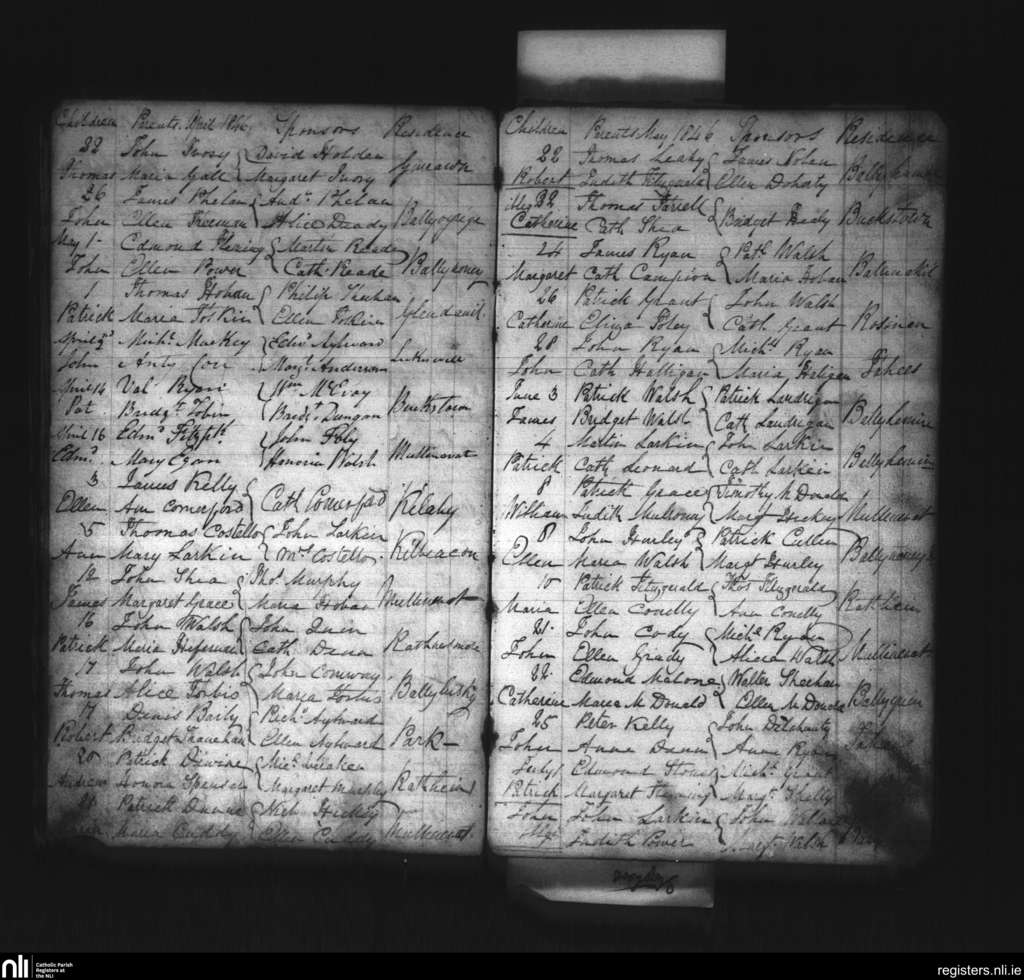 Children Parents April 1846 Sponsors Residence
22 John Ivory David Hoban
Thomas Maria Gall Margaret Ivory
26 James Phelan And. Phelan
John Ellen Freeman Alice Deady
May 1 Edmond Fleming Martin Reade
John Ellen Power Cath Reade Ballynoney
1 Thomas Hoban Philip Sheehan
Patrick Maria Foskin Ellen Foskin
April Michl. Mackey Edmd Aylward
John Anty Margt. Anderson
April 14 Val Ryan Wm McEvoy
Pat. Bridgt. Tobin Bridt. Dungan Buckstown
April 16 Edmd. Fitzpk John Foly
Edmd. Mary Egan Honoria Walsh Mullinavat
3 James Kelly
Ellen Ann Comerford Cath Comerford Kilahy
5 Thomas Costello John Larkin
Ann Mary Larkin Mrs Costello Kilbeacon
12 John Shea Thos. Murphy
James Margaret Grace Maria Hoban Mullinavat
16 John Walsh John Quin
Patrick Maria Hefernan Cath Dunn
17 John Walsh John Conway
Thomas Alice Forbis Maria Forbis
17 Denis Baily Richd Aylward
Robert Bridget Ellen Aylward Park
20 Patrick Divine Micl.
Andrew Honora Spenser Margaret Murphy
Patrick Dunne Nich Hickey
Maria Cuddy Ellen Cuddy Mullinavat
Children Parents May 1846 Sponsors Residence
22 Thomas Leahy James Nolan
Robert Judith Fitzgerald Ellen Doherty
illeg 22 Thomas Farrell
Catherine Cath Shea Bridget Healy Buckstown
24 James Ryan Patk. Walsh
Margaret Cath Campion Maria Hoban
26 Patrick Grant John Walsh
Catherine Eliza Foley Cath Grant Rosinen
28 John Ryan Michl Ryan
John Cath Halligan Maria Fahees
June 3 Patrick Walsh Patrick Landrigan
James Bridget Walsh Cath Landrigan
4 Martin Larkin John Larkin
Patrick Cath Leonard Cath Larkin
8 Patrick Grace Timothy McDonald
William Judith Mulrony Margt Hickey Mullinavat
8 John Hurley Patrick Cullen
Ellen Maria Walsh Margt Hurley Ballynoney
10 Patrick Fitzgerald Thos Fitzgerald
Maria Ellen Conelly Ann Conelly
21 John Cody Michl Ryan
John Ellen Grady Alicia Walsh Mullinavat
22 Edmond Malone Walter Sheehan
Catherine Maria McDonald Ellen McDonald
25 Peter Kelly John Delahunty
John Anne Dunn Anne Ryan
July 1 Edmond Michl. Grant
Patrick Margaret Fleming Margt. Shelly
John John Larkin John
illeg Judith Power Margt Walsh
nli
Catholic Parish
Registers at
the NLI
registers.nli.ie